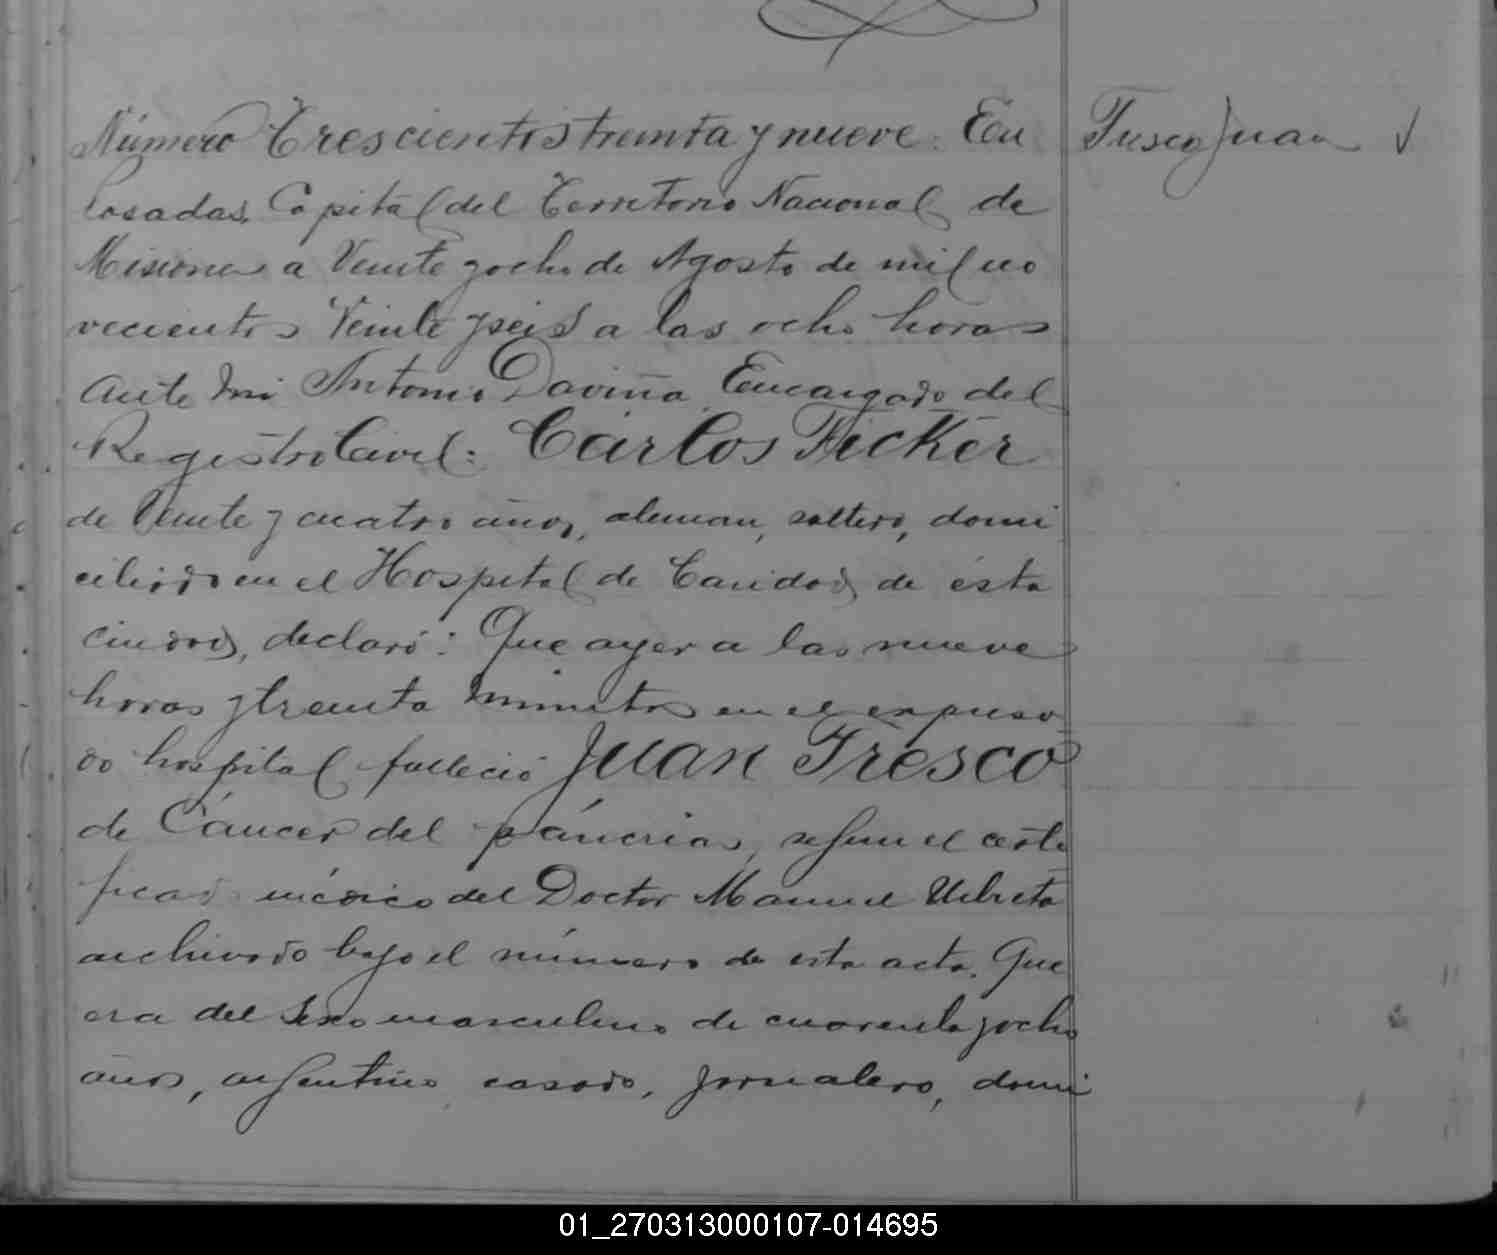 Número Trescientos treinta y nueve. En
Posadas, Capital del Territorio Nacional de
Misiones a Veinte y ocho de Agosto de mil no
vecientos Veinte y seis a las ocho horas
ante mi Antonio Daviña Encargado del
Registro Civil: Carlos Ficker
de Veinte y cuatro años, aleman, soltero, domi
ciliado en el Hospital de Caridad de ésta
ciudad, declaró: Que ayer a las nueve
horas y treinta minutos en el expresa
do hospital falleció Juan Fresco
de Cáncer del páncrias, segun el certi
ficado médico del Doctor Manuel Urbieta
archivado bajo el número de esta acta. Que
era del sexo masculino de cuarenta y ocho
años, argentino, casado, jornalero, domi
Fresco Juan ✓
01_270313000107-014695